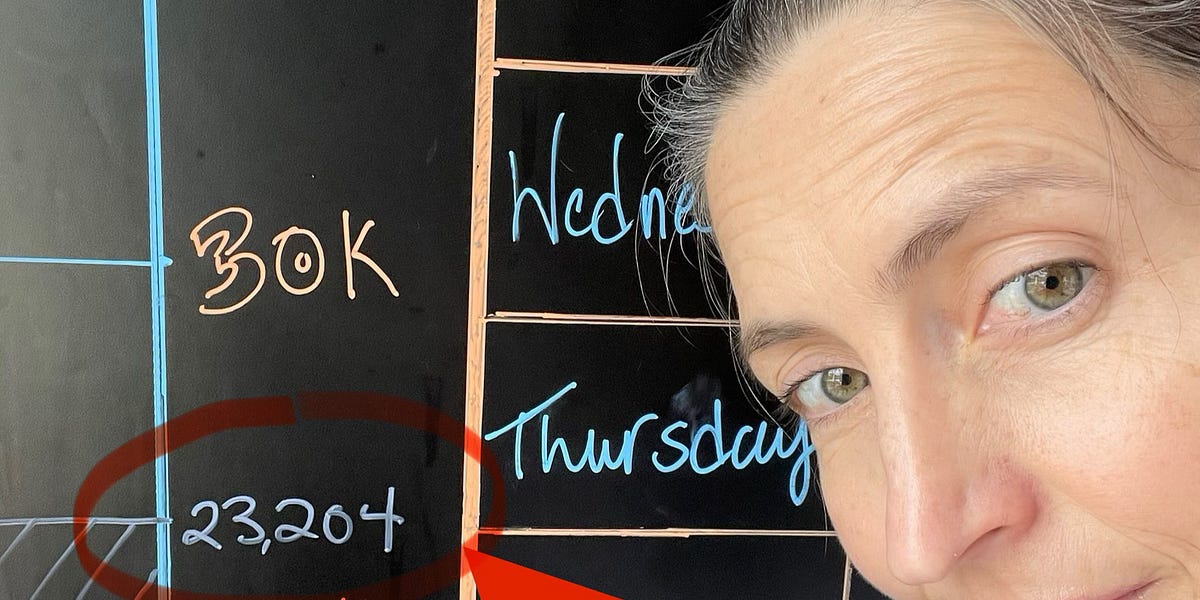 30K
23,204
Wedne
Thursday